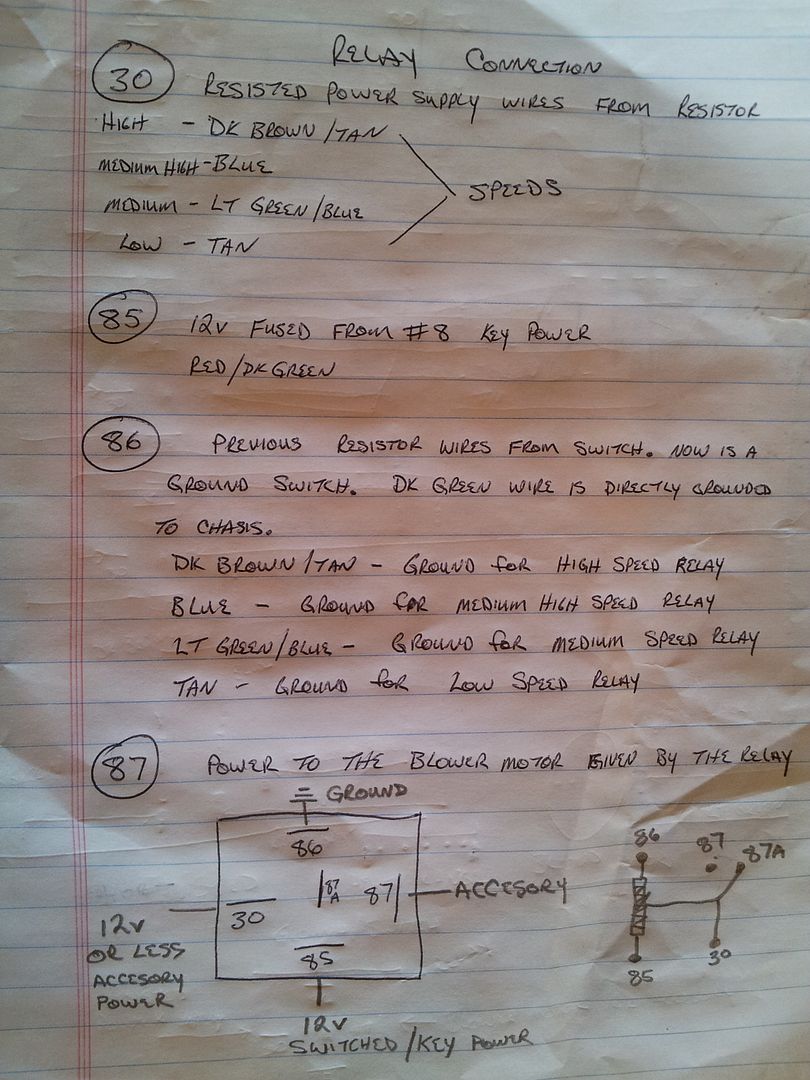 RELAY CONNECTION
30 RESISTED POWER SUPPLY WIRES FROM RESISTOR
HIGH - DK BROWN/TAN
MEDIUM HIGH - BLUE
SPEEDS
MEDIUM - LT GREEN/BLUE
LOW - TAN
85 12V FUSED FROM #8 KEY POWER
RED/DK GREEN
86 PREVIOUS RESISTOR WIRES FROM SWITCH. NOW IS A
GROUND SWITCH. DK GREEN WIRE IS DIRECTLY GROUNDED
TO CHASIS.
DK BROWN/TAN - GROUND for HIGH SPEED RELAY
BLUE - GROUND for MEDIUM HIGH SPEED RELAY
LT GREEN/BLUE - GROUND for MEDIUM SPEED RELAY
TAN - GROUND for LOW SPEED RELAY
87 POWER TO THE BLOWER MOTOR GIVEN BY THE RELAY
GROUND
86
30
87A
87
ACCESORY
85
12V
OR LESS
ACCESORY
POWER
12V
SWITCHED/KEY POWER
86
87
87A
85
30